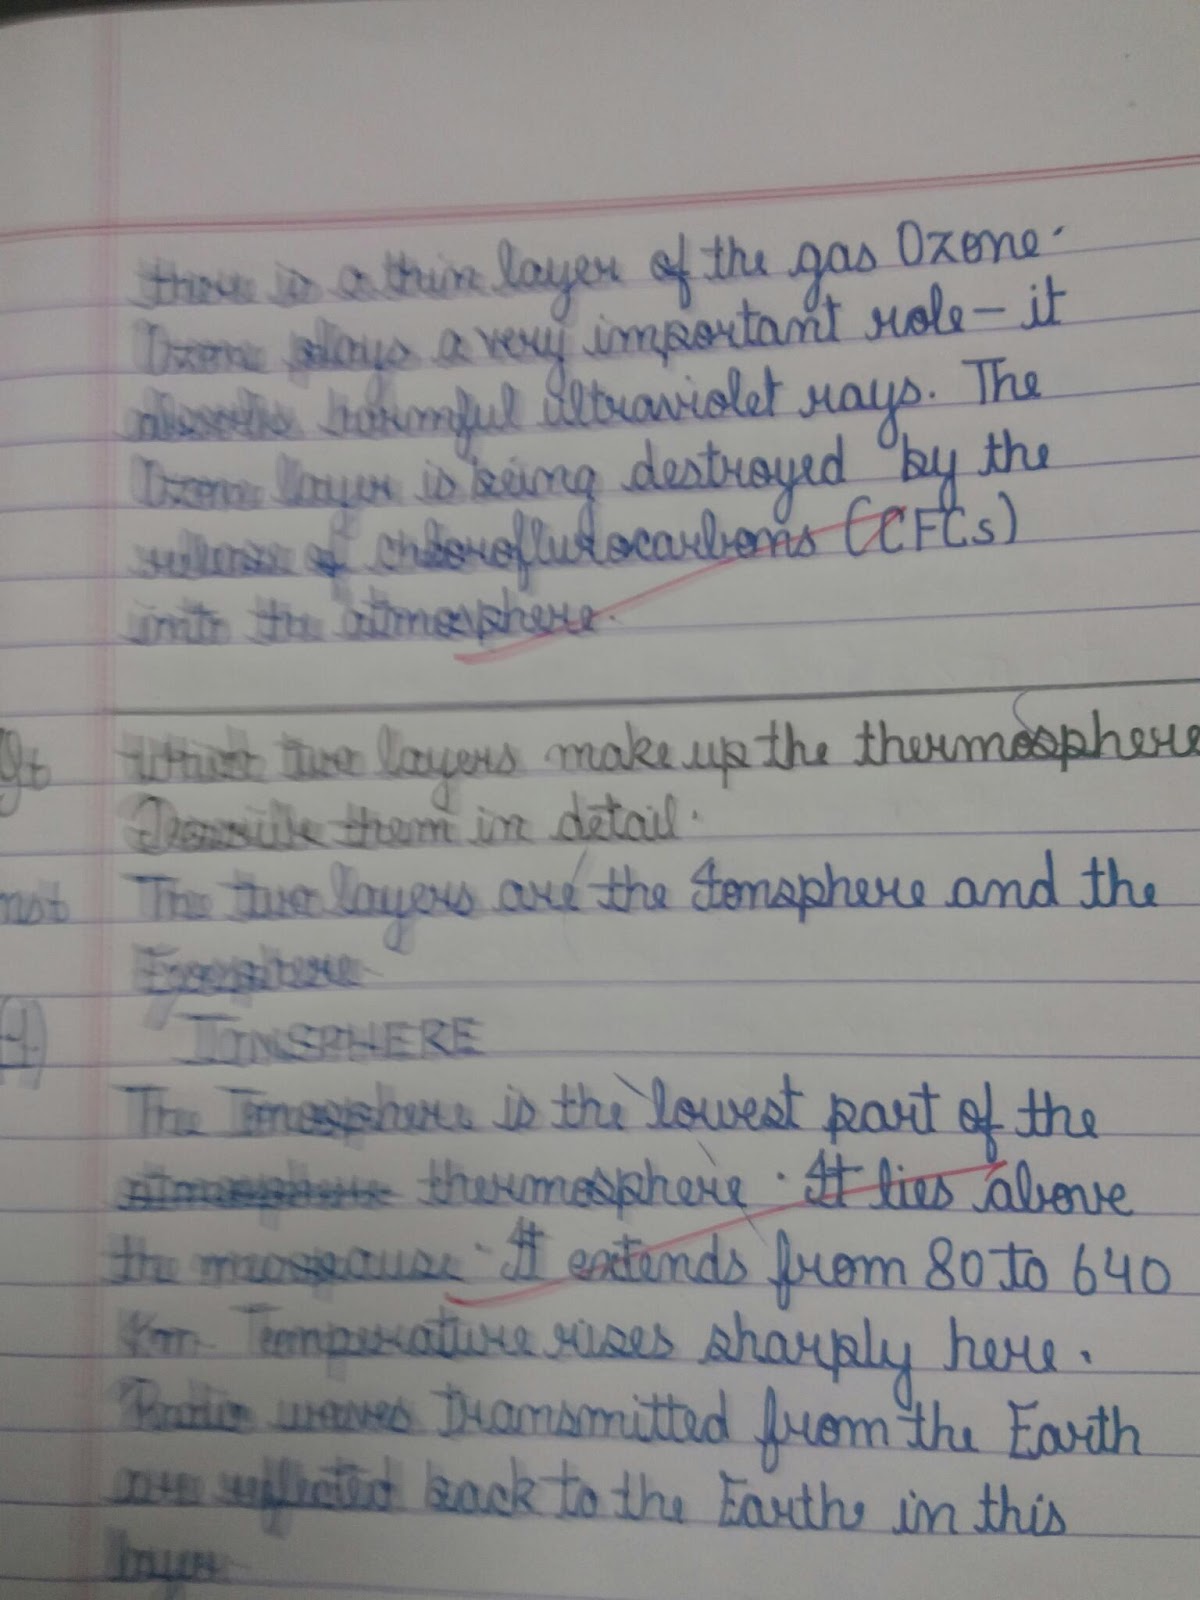 there is a thin layer of the gas Ozone.
Ozone plays a very important role - it
absorbs harmful ultraviolet rays. The
Ozone layer is being destroyed by the
release of chloroflurocarbons (CFCs)
into the atmosphere.
What two layers make up the thermosphere
Describe them in detail.
The two layers are the Ionsphere and the
Exosphere.
IONSPHERE
The Ionosphere is the lowest part of the
thermosphere. It lies above
the mesopause. It extends from 80 to 640
Km. Temperature rises sharply here.
Radio waves transmitted from the Earth
are reflected back to the Earth in this
layer.